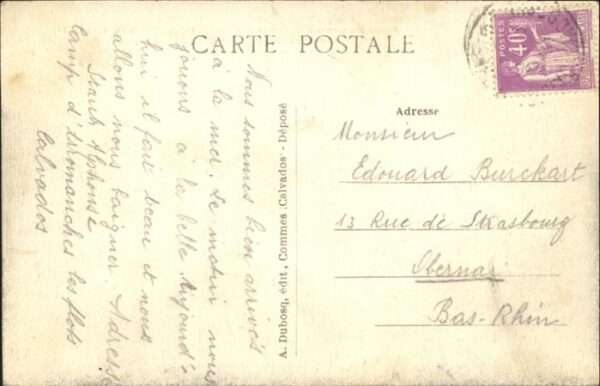 CARTE POSTALE
POSTES
40c
Nous sommes bien arrivés
à la mer. Le matin nous
jouons à la belle Aujourd'
hui il fait beau et nous
allons nous baigner. Adresse
Alphonse
Camp d'Arromanches les flots
Calvados
A. Dubosq, édit., Commes (Calvados) - Déposé
Adresse
Monsieur
Edouard Burckart
13 Rue de Strasbourg
Obernai
Bas-Rhin